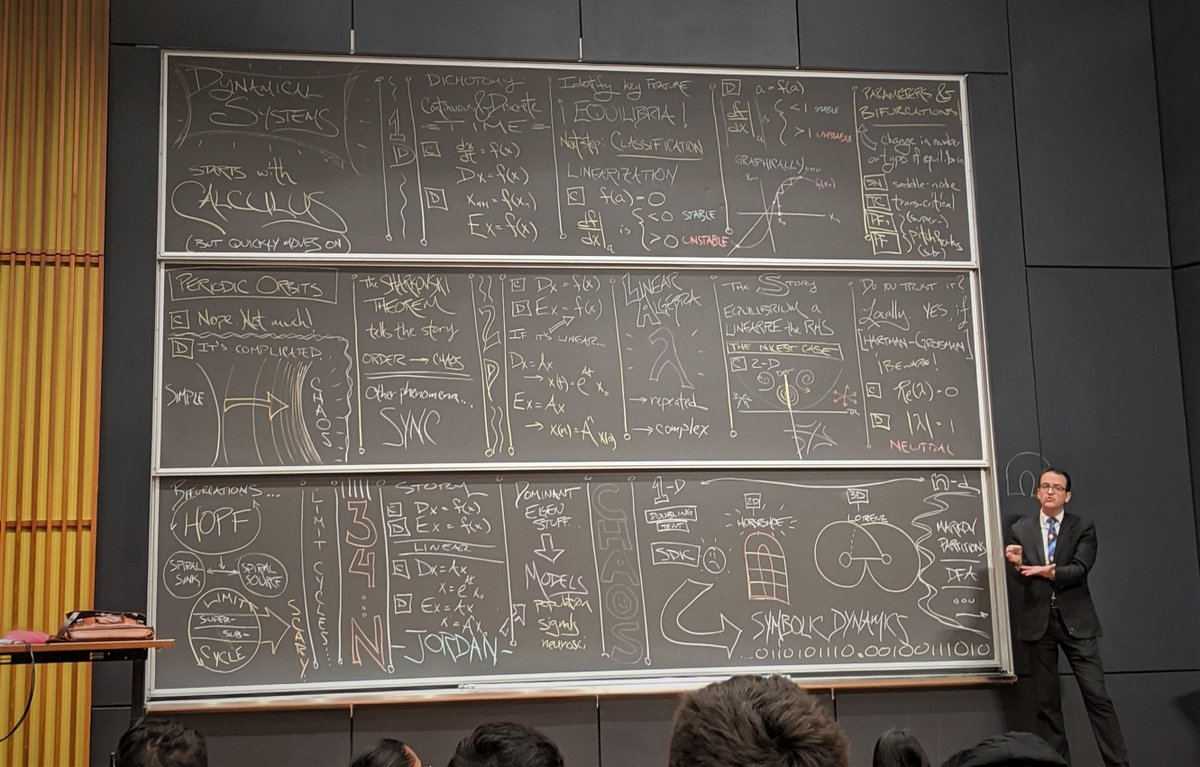 DYNAMICAL
SYSTEMS
STARTS with
CALCULUS
(BUT QUICKLY MOVES ON)
1
D
DICHOTOMY
Continuous & Discrete
=TIME=
C dx/dt = f(x)
Dx = f(x)
D xn+1 = f(xn)
Ex = f(x)
Identify key FEATURE
EQUILIBRIA!
Next step: CLASSIFICATION
LINEARIZATION
C f(a) = 0
df/dx|a is { <0 STABLE
>0 UNSTABLE
D a = f(a)
df/dx|a is { <1 STABLE
>1 UNSTABLE
GRAPHICALLY....
xn+1
f(xn)
x0
xn
PARAMETERS &
BIFURCATIONS
change in number
or type of equilibria
SN saddle-node
TC transcritical
PF+ (super-)
PF- (sub)
Pitchforks
PERIODIC ORBITS
C Nope. Not much!
D IT'S COMPLICATED.
SIMPLE
CHAOS
the SHARKOVSKII
THEOREM
tells the story
ORDER → CHAOS
Other phenomena...
SYNC
2
D
C Dx = f(x)
D Ex = f(x)
IF it's LINEAR...
Dx = Ax
→ x(t) = e^At x0
Ex = Ax
→ x(n) = A^n x(0)
LINEAR
ALGEBRA
λ
→ repeated
→ complex
THE STORY
EQUILIBRIUM a
LINEARIZE the RHS
THE NICEST CASE
C 2-D
DET
TR
DO YOU TRUST it?
Locally. YES, if
HARTMAN-GROBMAN
¡BEWARE!
C Re(λ) = 0
D |λ| = 1
NEUTRAL
BIFURCATIONS...
HOPF
SPIRAL SINK
SPIRAL SOURCE
LIMIT
SUPER-
SUB-
CYCLE
SCARY
LIMIT CYCLES...
3
4
...
N
STORY
C Dx = f(x)
D Ex = f(x)
LINEAR
C Dx = Ax
x = e^At x0
D Ex = Ax
x = A^n x0
-JORDAN-
DOMINANT
EIGEN
STUFF...
MODELS
population
signals
neurosci
CHAOS
1-D
n-d
DOUBLING
TENT
SDIC
2D
HORSESHOE
3D
LORENZ
MARKOV
PARTITIONS
DFA
SYMBOLIC DYNAMICS
...011010110.00100111010